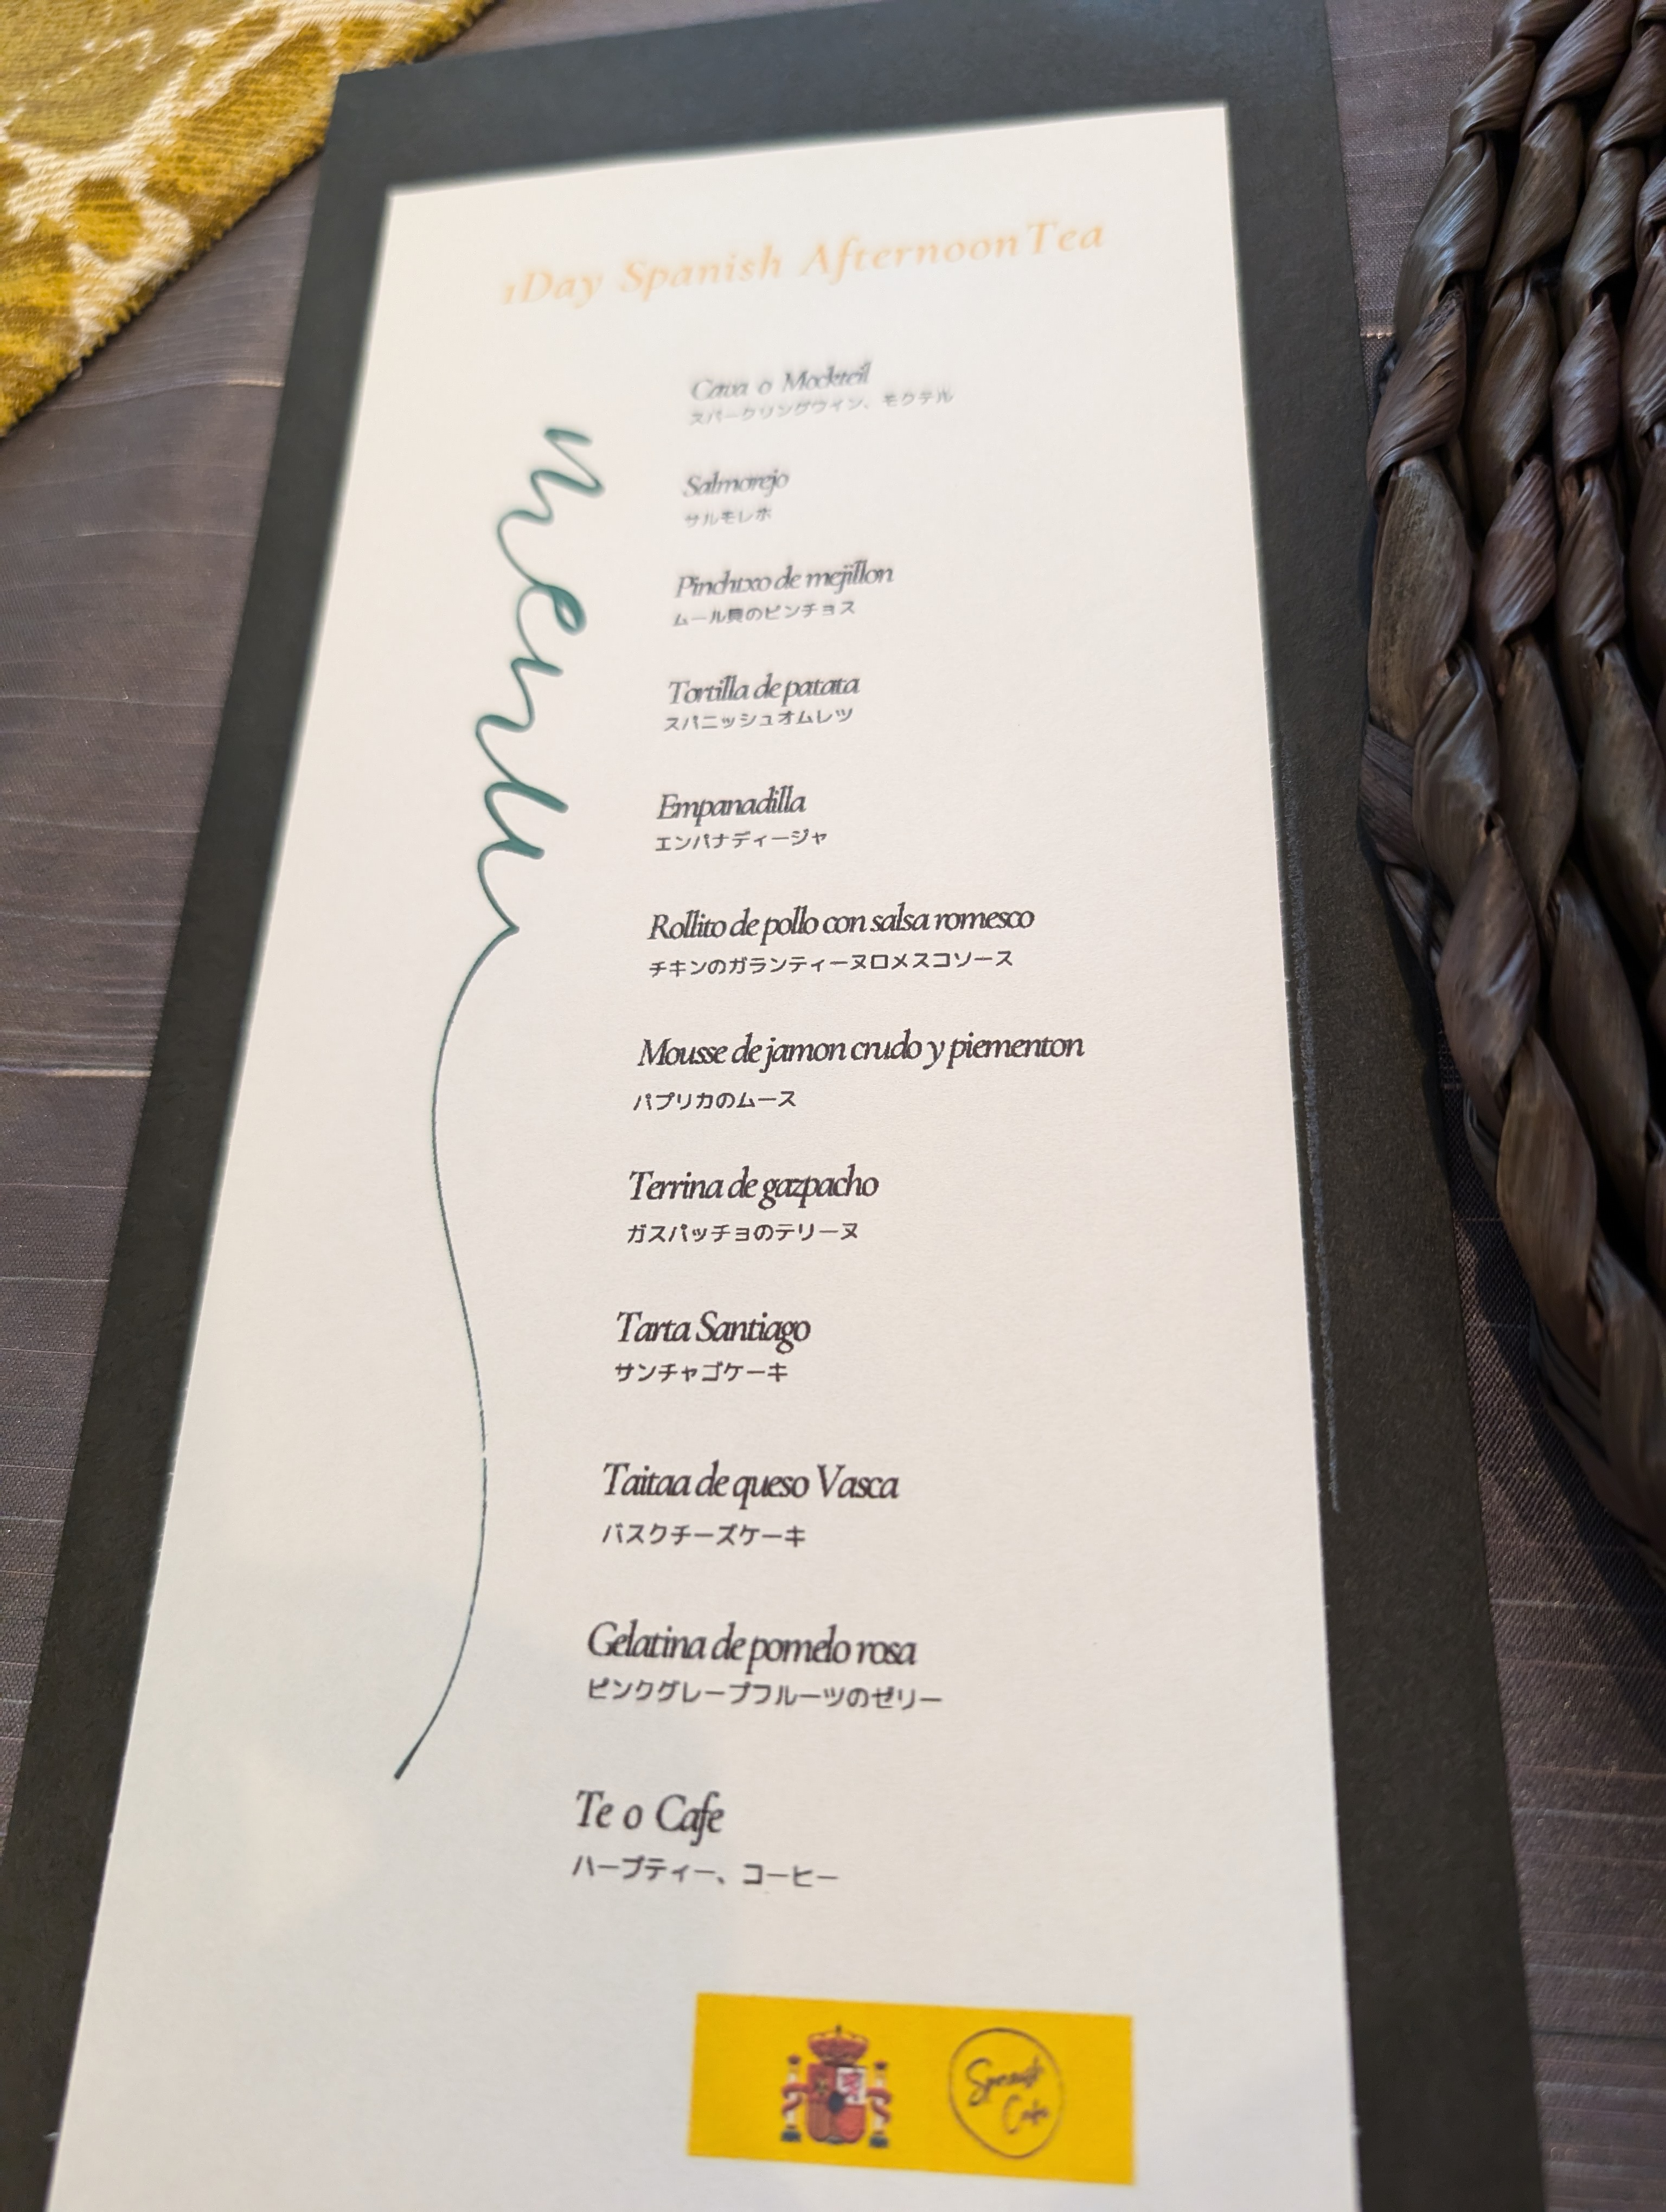 1Day Spanish AfternoonTea
menu
Cava o Mockteil
スパークリングワイン、モクテル
Salmorejo
サルモレホ
Pinchtxo de mejillon
ムール貝のピンチョス
Tortilla de patata
スパニッシュオムレツ
Empanadilla
エンパナディージャ
Rollito de pollo con salsa romesco
チキンのガランティーヌロメスコソース
Mousse de jamon crudo y piementon
パプリカのムース
Terrina de gazpacho
ガスパッチョのテリーヌ
Tarta Santiago
サンチャゴケーキ
Taitaa de queso Vasca
バスクチーズケーキ
Gelatina de pomelo rosa
ピンクグレープフルーツのゼリー
Te o Cafe
ハーブティー、コーヒー
Spanish
Cafe